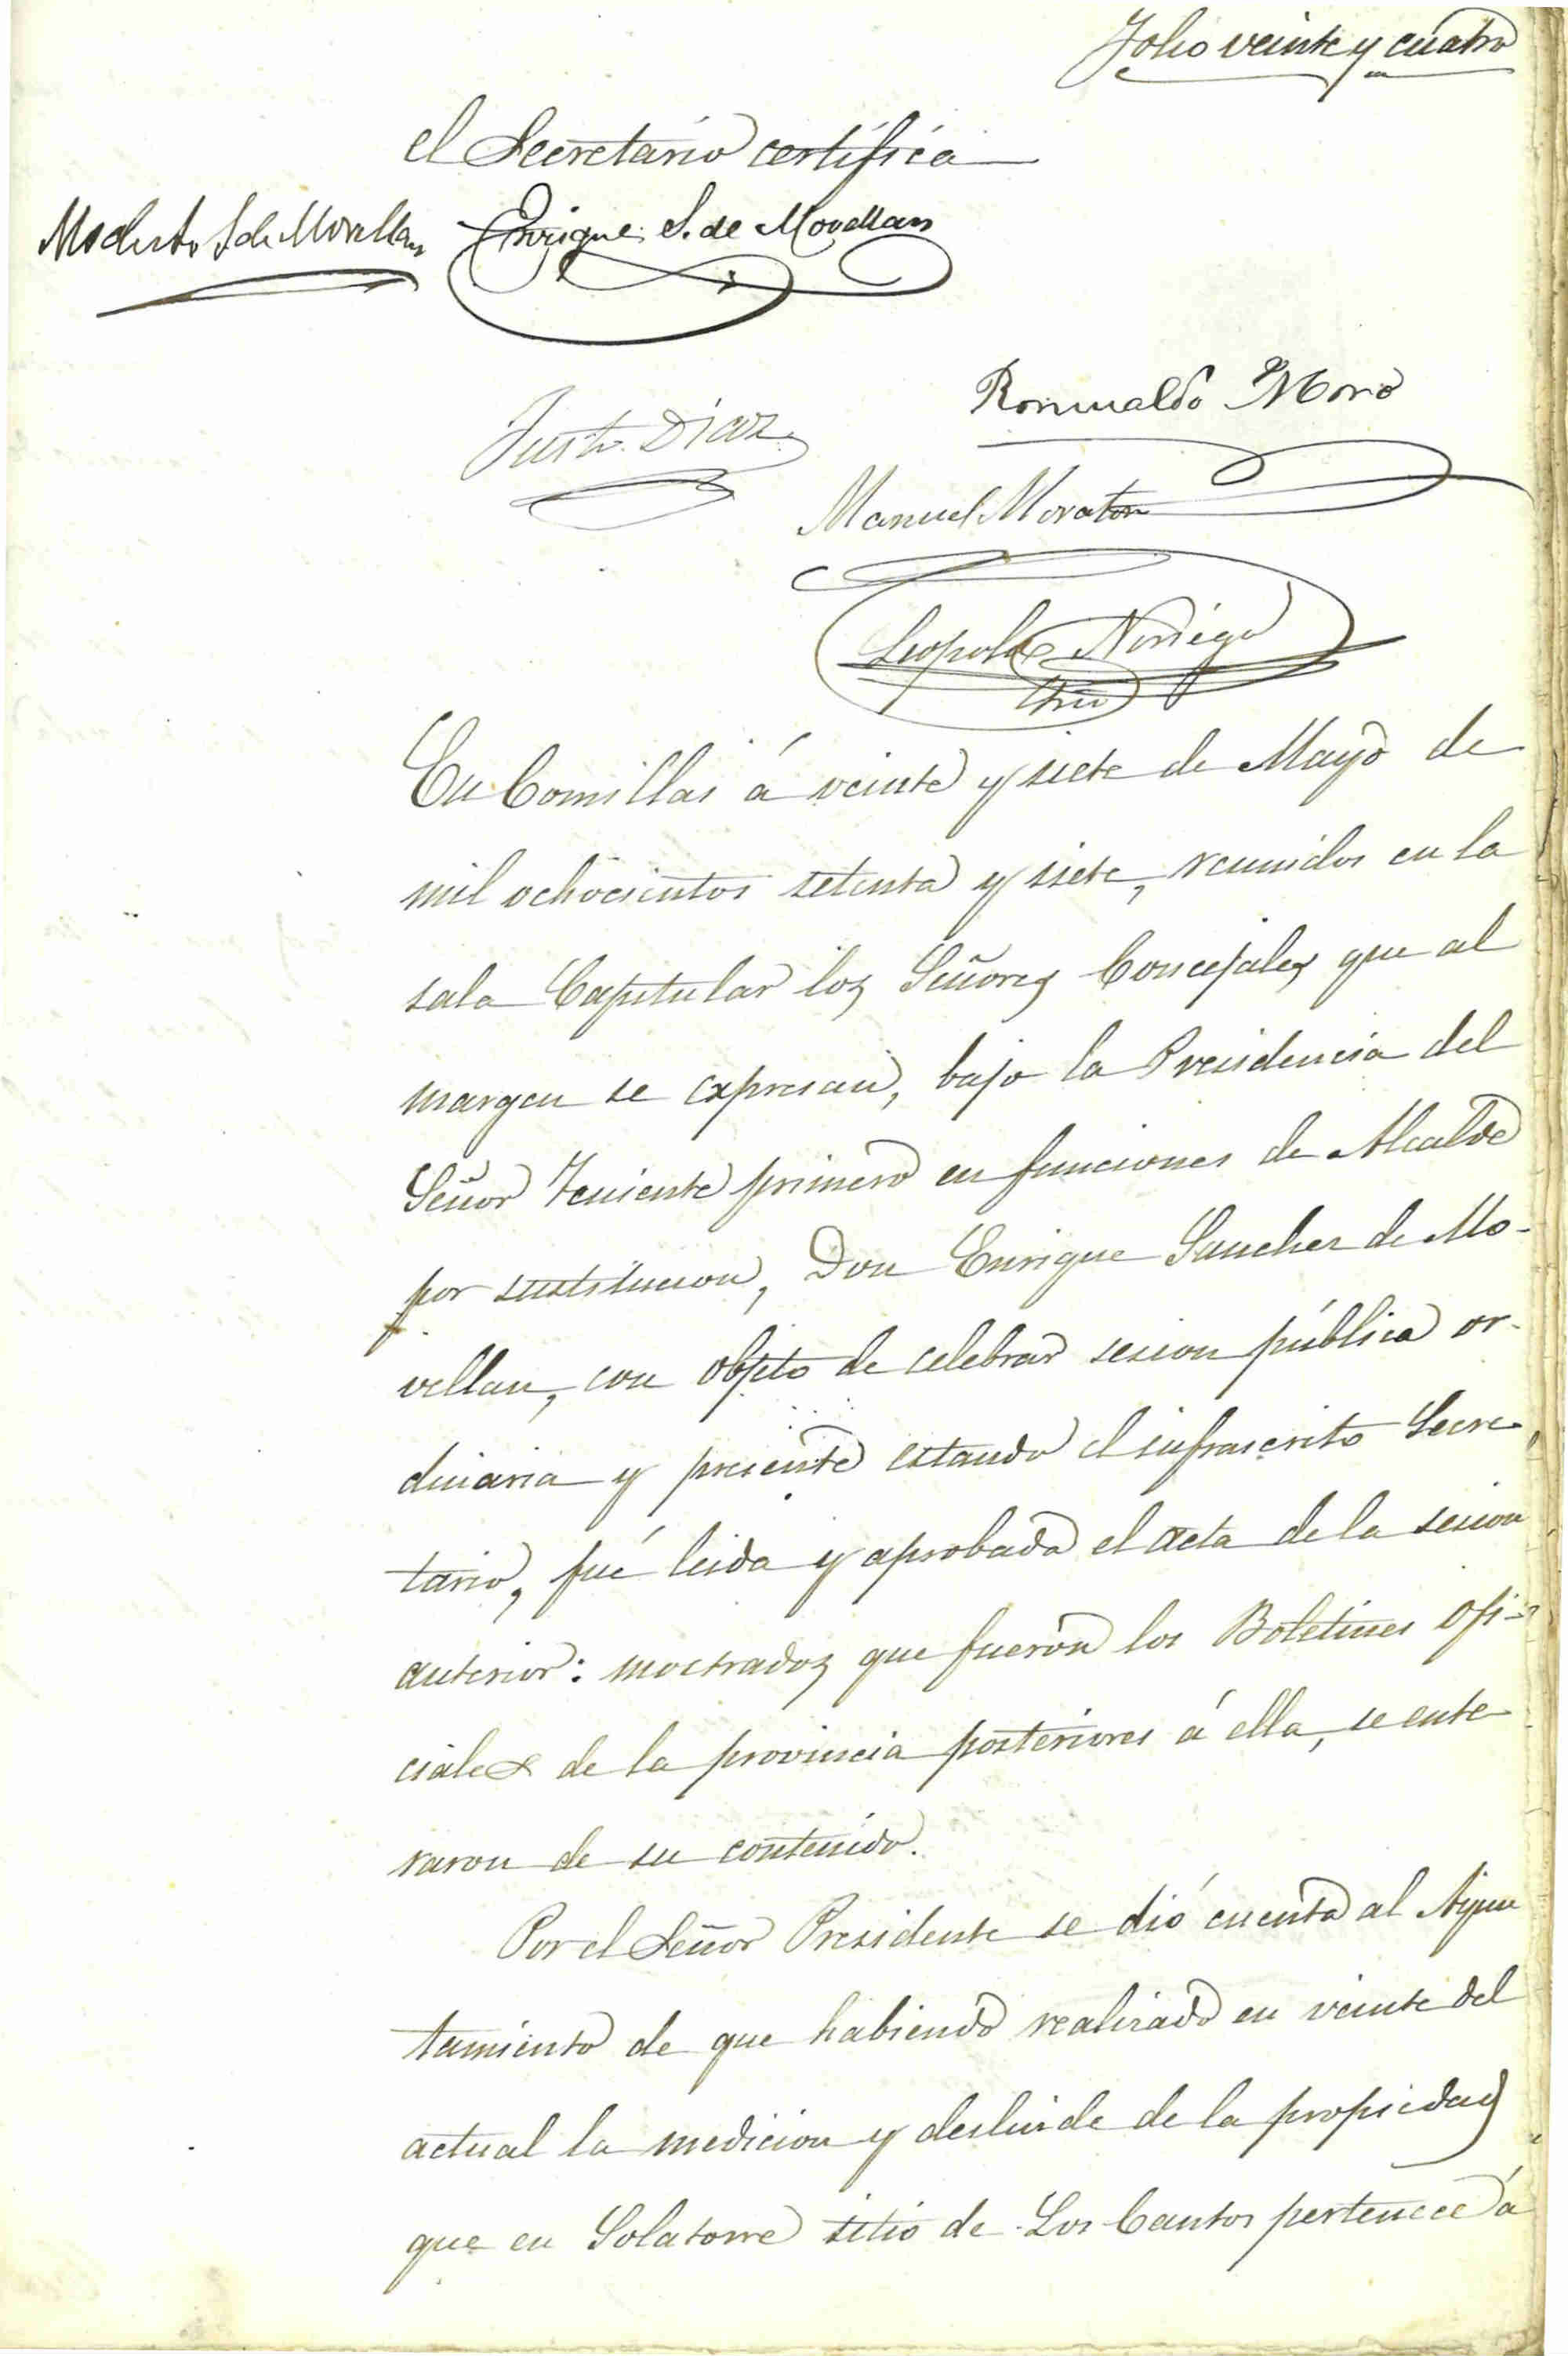 Folio veinte y cuatro
el Secretario certifica
Modesto S. de Movellan Enrique S. de Movellan
Romualdo Moro
Justo Diaz
Manuel Moraton
Leopoldo Noriega
Srio
En Comillas á veinte y siete de Mayo de
mil ochocientos setenta y siete, reunidos en la
sala Capitular los Señores Concejales que al
margen se expresan, bajo la Presidencia del
Señor Teniente primero en funciones de Alcalde
por sustitucion, Don Enrique Sanchez de Mo-
vellan, con objeto de celebrar sesion pública or-
dinaria y presente estando el infrascrito Secre-
tario, fué leida y aprobada el acta de la sesion
anterior: mostrados que fueron los Boletines ofi-
ciales de la provincia posteriores á ella, se ente
raron de su contenido.
Por el Señor Presidente se dió cuenta al Ayun
tamiento de que habiendo realizado en veinte del
actual la medicion y deslinde de la propiedad
que en Solatorre sitio de Los Cantos pertenece á